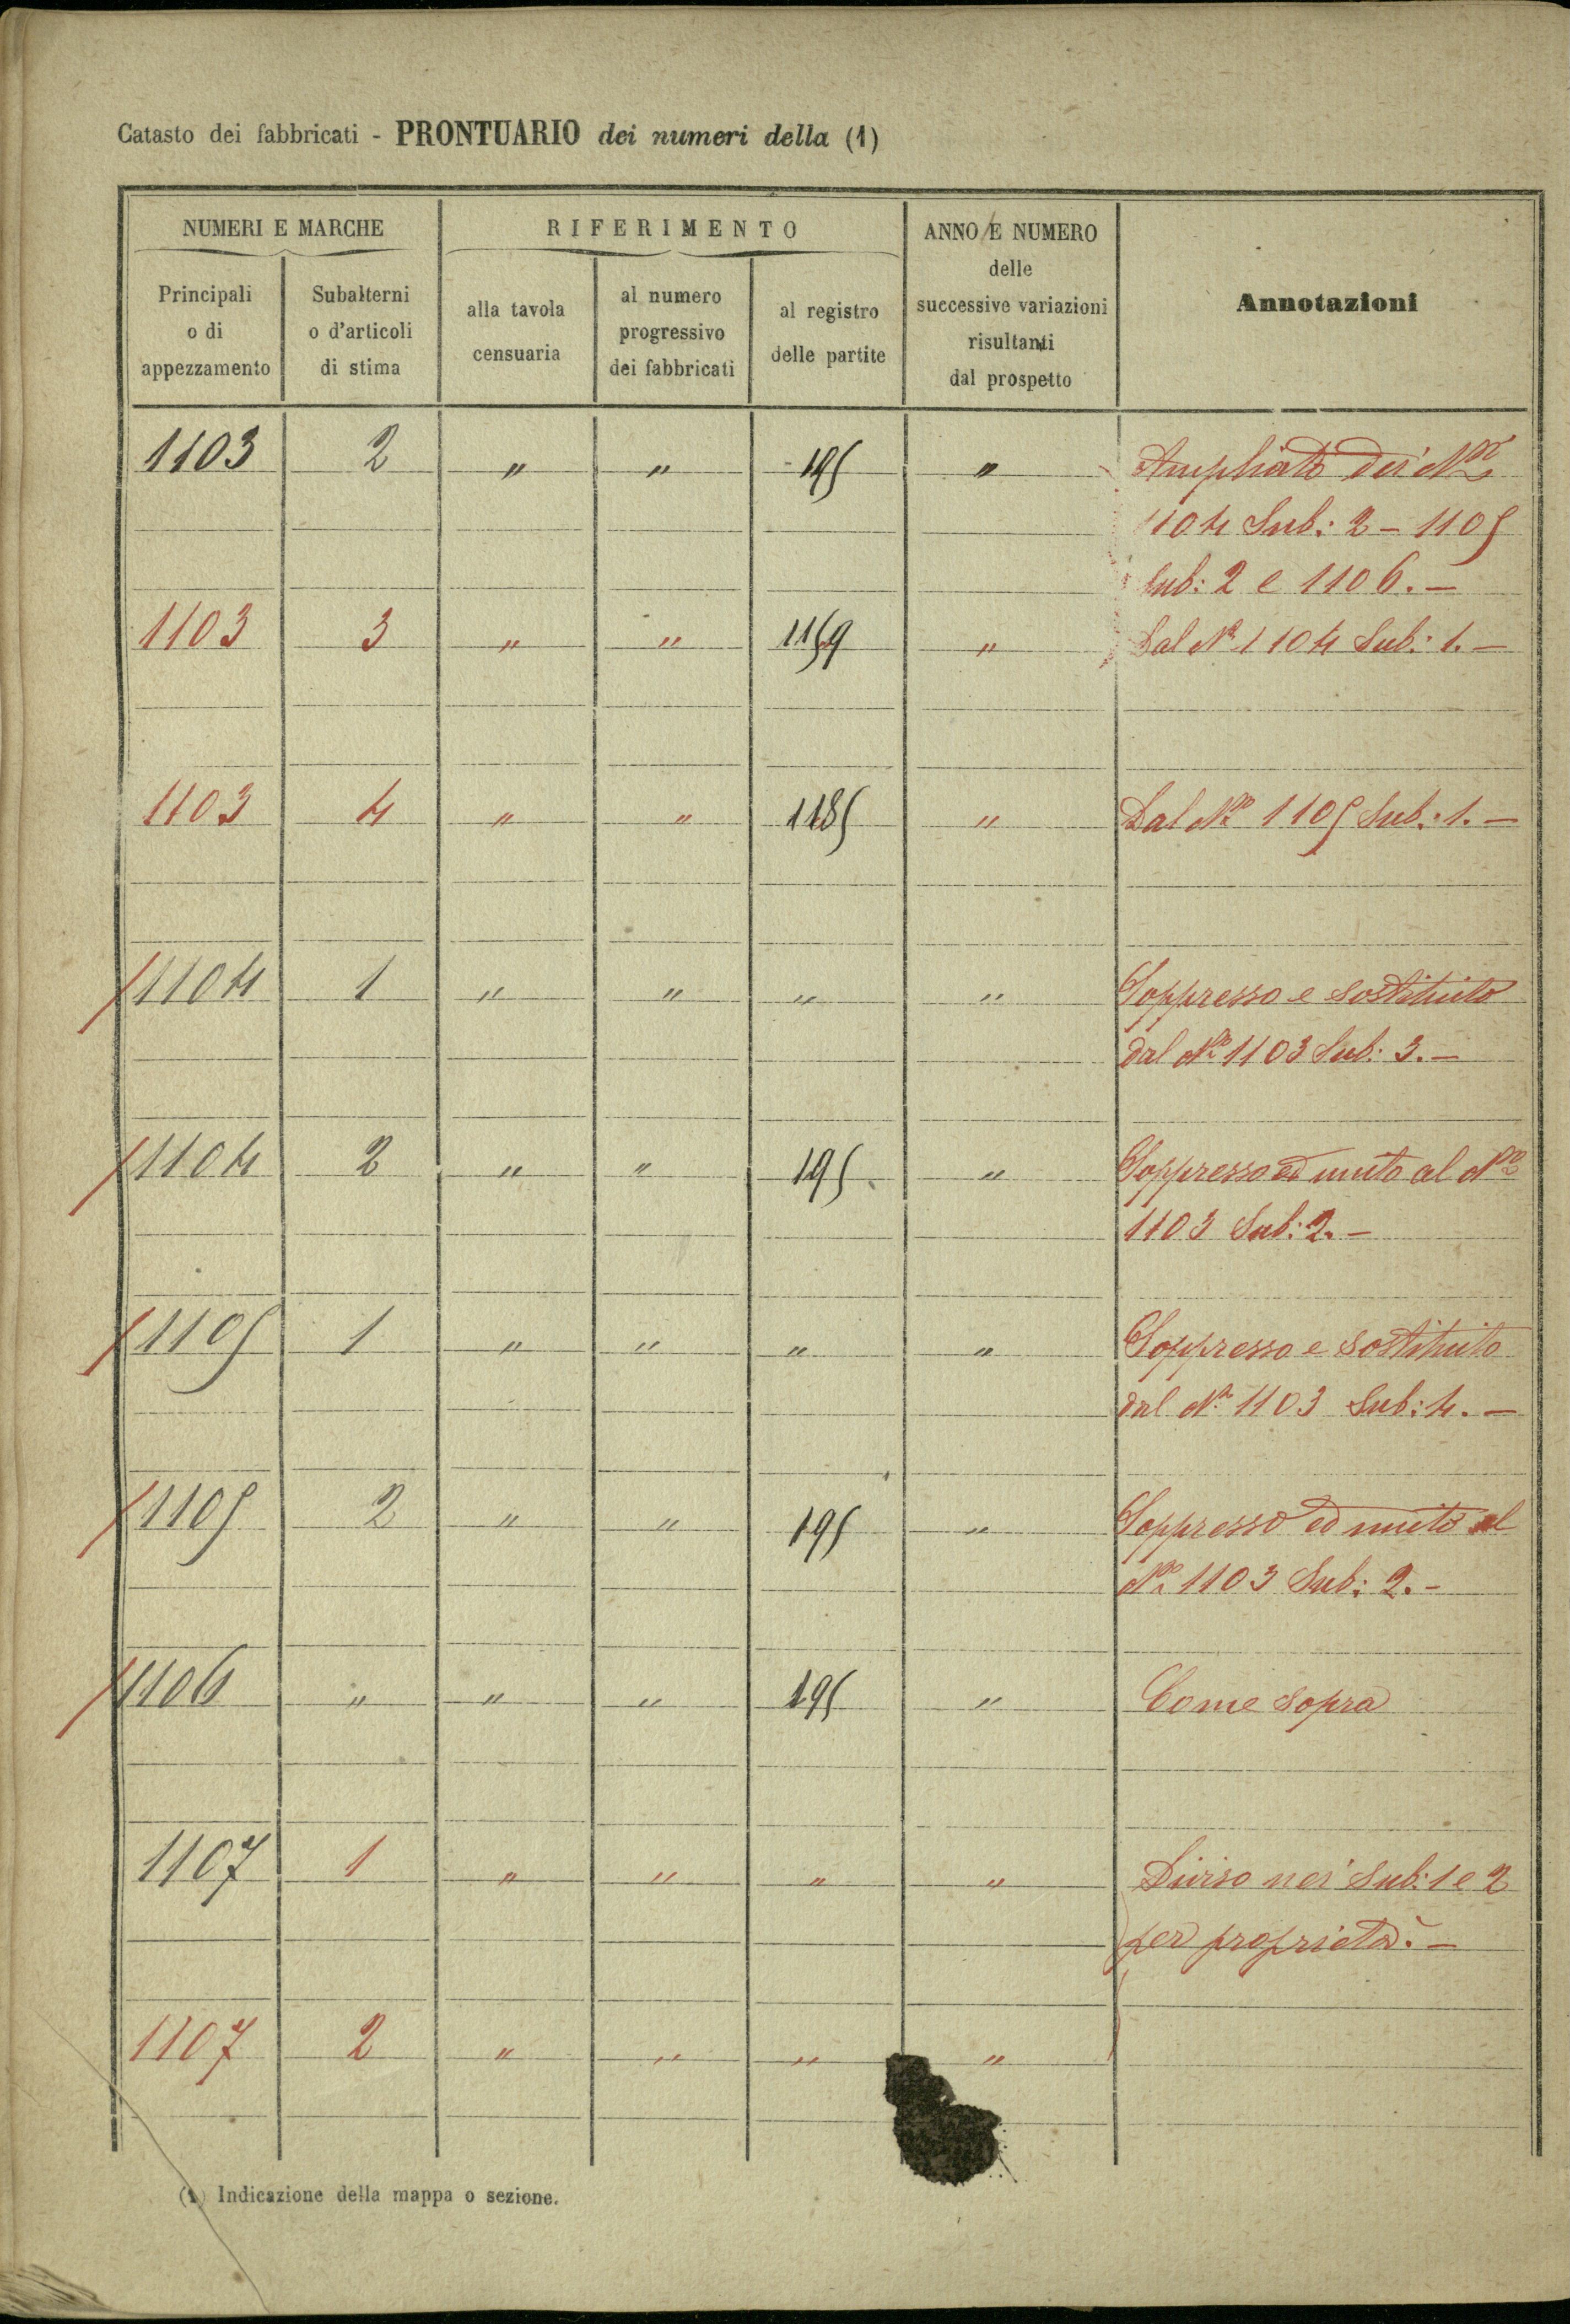 Catasto dei fabbricati - PRONTUARIO dei numeri della (1)
NUMERI E MARCHE
RIFERIMENTO
ANNO E NUMERO
delle
successive variazioni
risultanti
dal prospetto
Annotazioni
Principali
o di
appezzamento
Subalterni
o d'articoli
di stima
alla tavola
censuaria
al numero
progressivo
dei fabbricati
al registro
delle partite
1103 2 " " 195 " Ampliato dei Nri
1104 Sub: 2 - 1105
Sub: 2 e 1106. -
1103 3 " " 1159 " Dal No 1104 Sub: 1. -
1103 4 " " 1185 " Dal No 1105 Sub: 1. -
1104 1 " " " " Soppresso e sostituito
dal No 1103 Sub: 3. -
1104 2 " " 195 " Soppresso ed unito al No
1103 Sub: 2. -
1105 1 " " " " Soppresso e sostituito
dal No 1103 Sub: 4. -
1105 2 " " 195 " Soppresso ed unito al
No 1103 Sub: 2. -
1106 " " " 195 " Come sopra
1107 1 " " " " Diviso nei Sub: 1 e 2
per proprietà. -
1107 2 " " " "
(1) Indicazione della mappa o sezione.